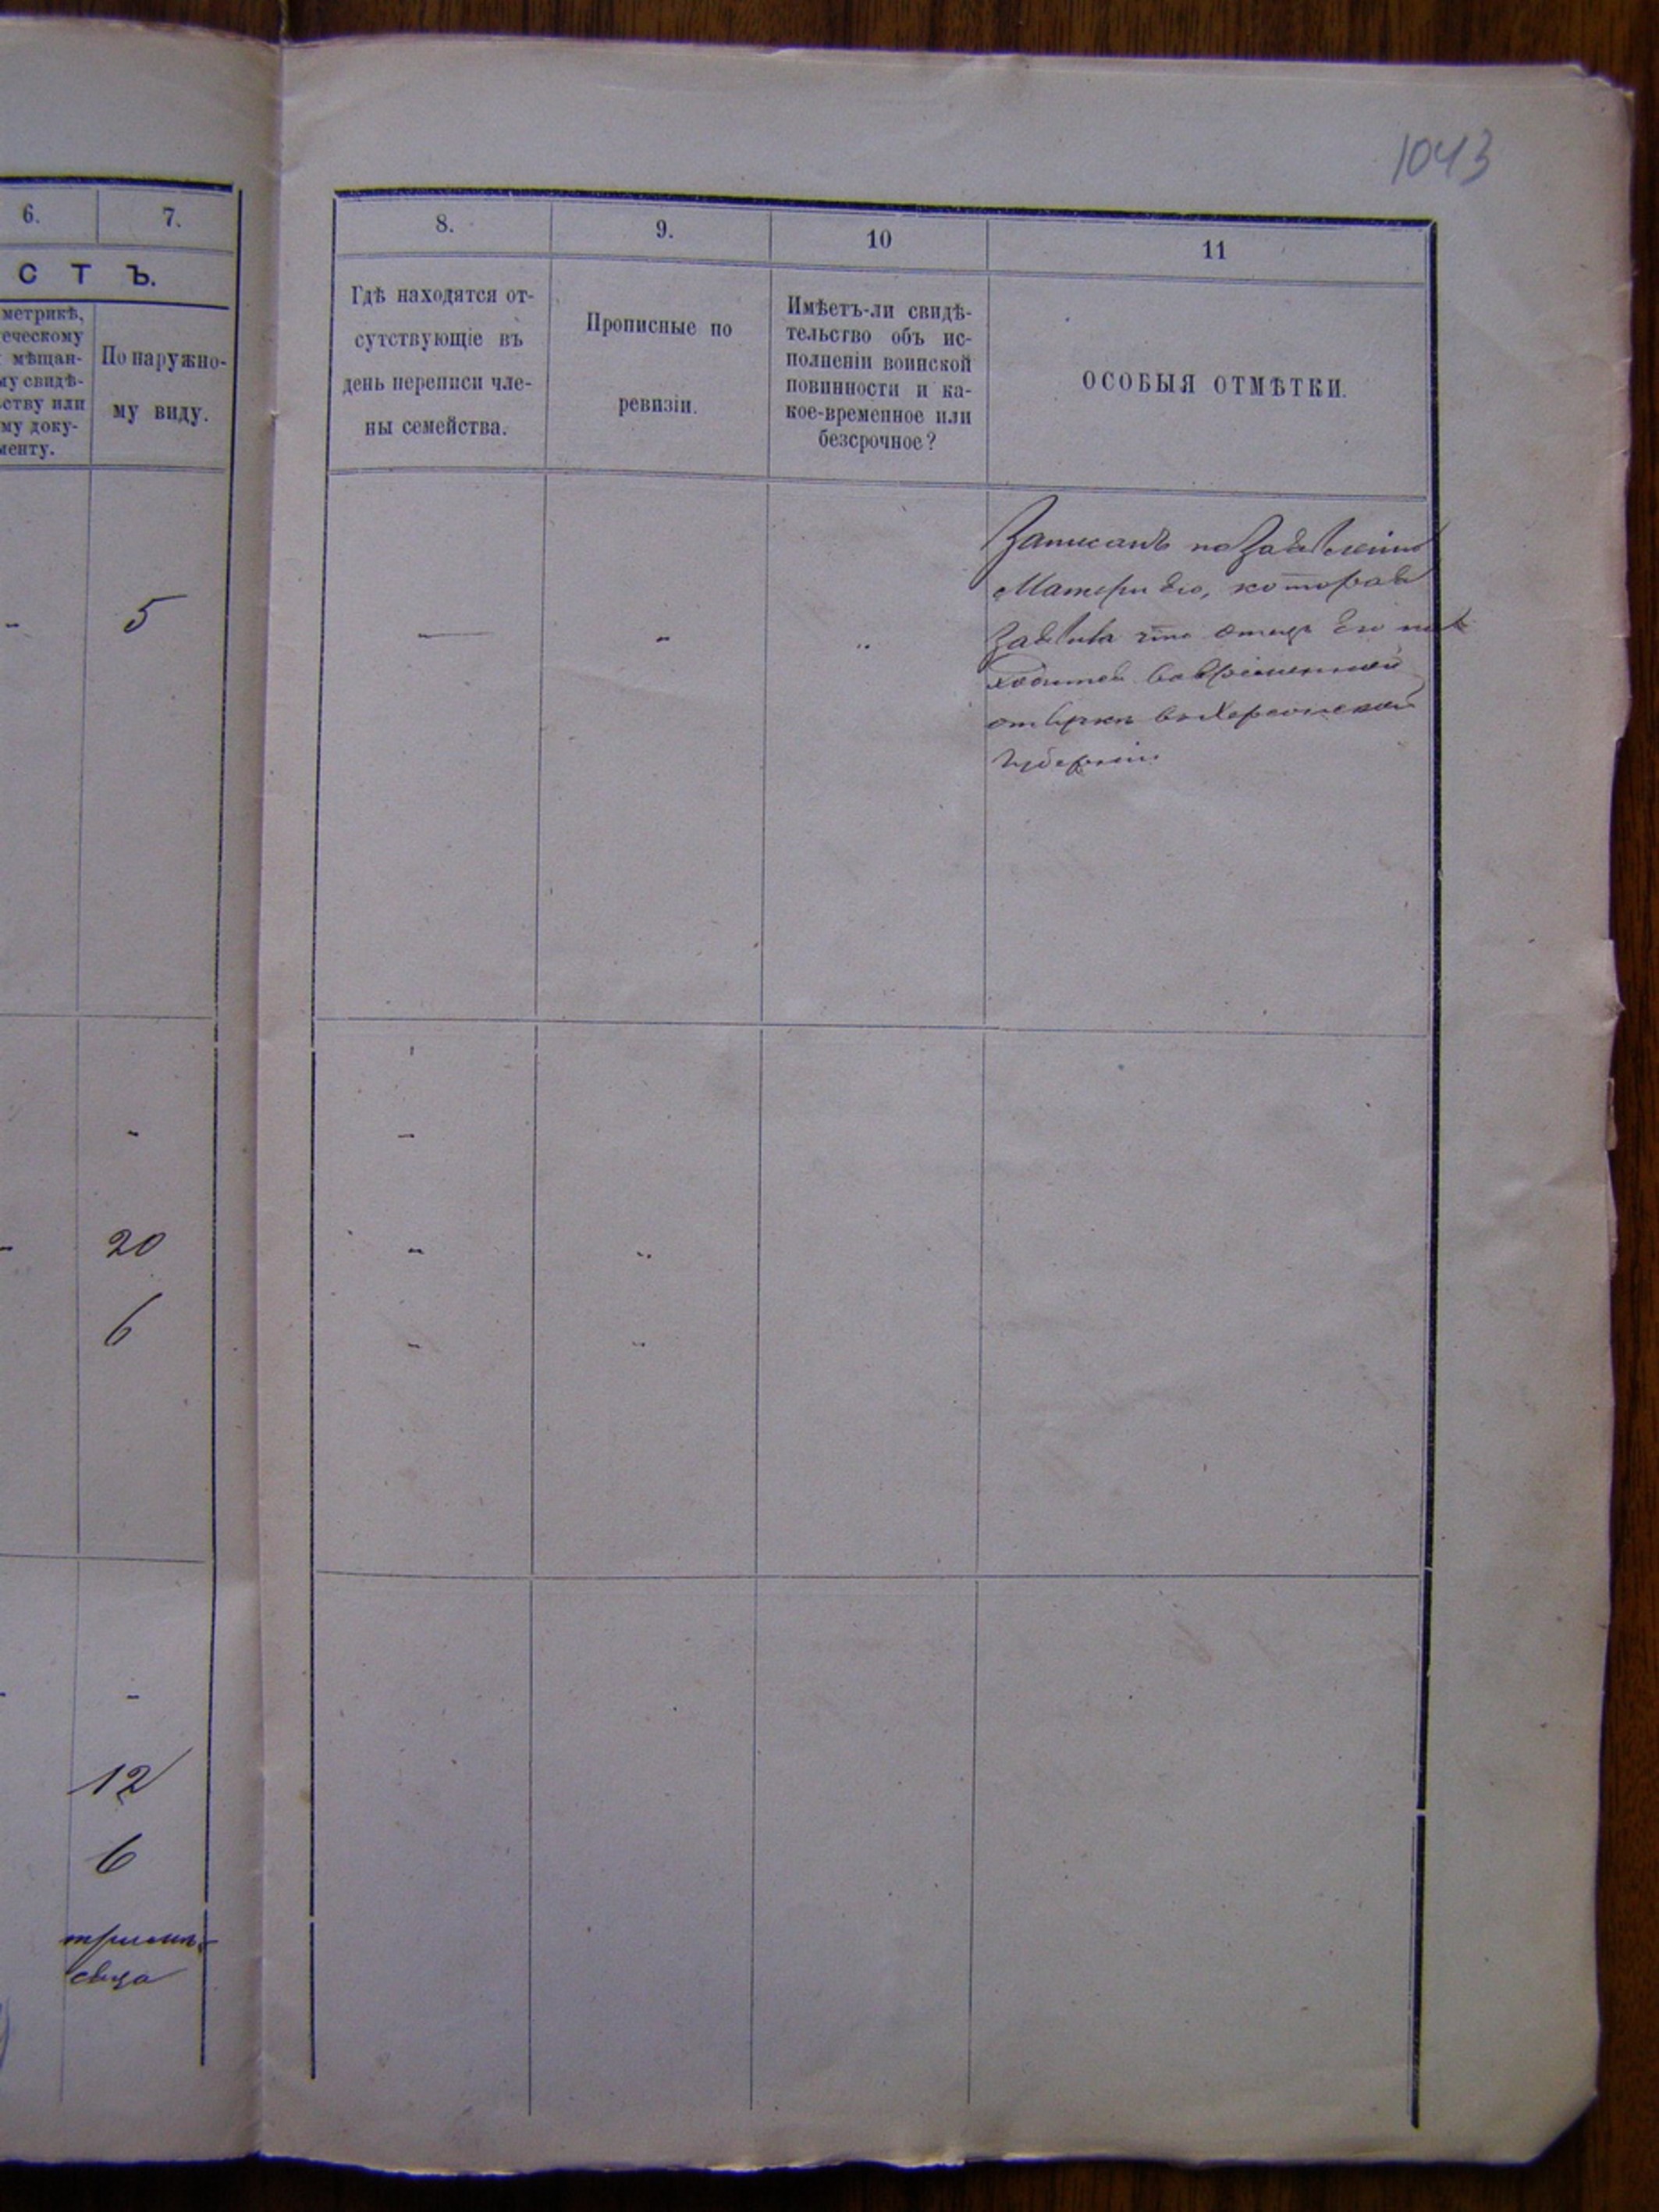 1043
6.
7.
СТЪ.
метрикѣ,
еческому
мѣщан-
му свидѣ-
ству или
му доку-
менту.
По наружно-
му виду.
5
20
6
12
6
тримѣ-
сяца
8.
9.
10
11
Гдѣ находятся от-
сутствующіе въ
день переписи чле-
ны семейства.
Прописные по
ревизіи.
Имѣетъ-ли свидѣ-
тельство объ ис-
полненіи воинской
повинности и ка-
кое-временное или
безсрочное?
ОСОБЫЯ ОТМѢТКИ.
Записанъ по заявленію
Матери его, которая
заявила что отецъ его на
ходится во временной
отлучкѣ въ Херсонской
губерніи